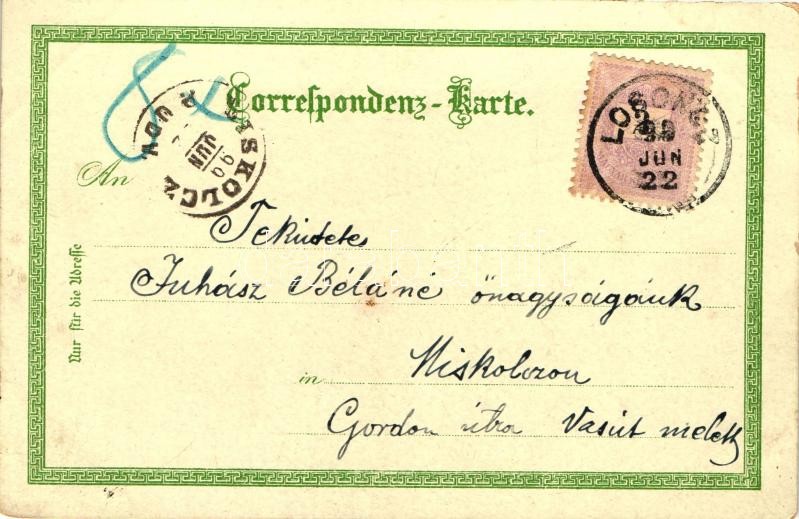 Correspondenz-Karte.
LOSONCZ
99
JUN
22
MISKOLCZ
99
JUN
An
Tekintetes
Juhász Béláné önagyságánk
in Miskolczon
Gordon útra Vasút melett
Nur für die Adresse